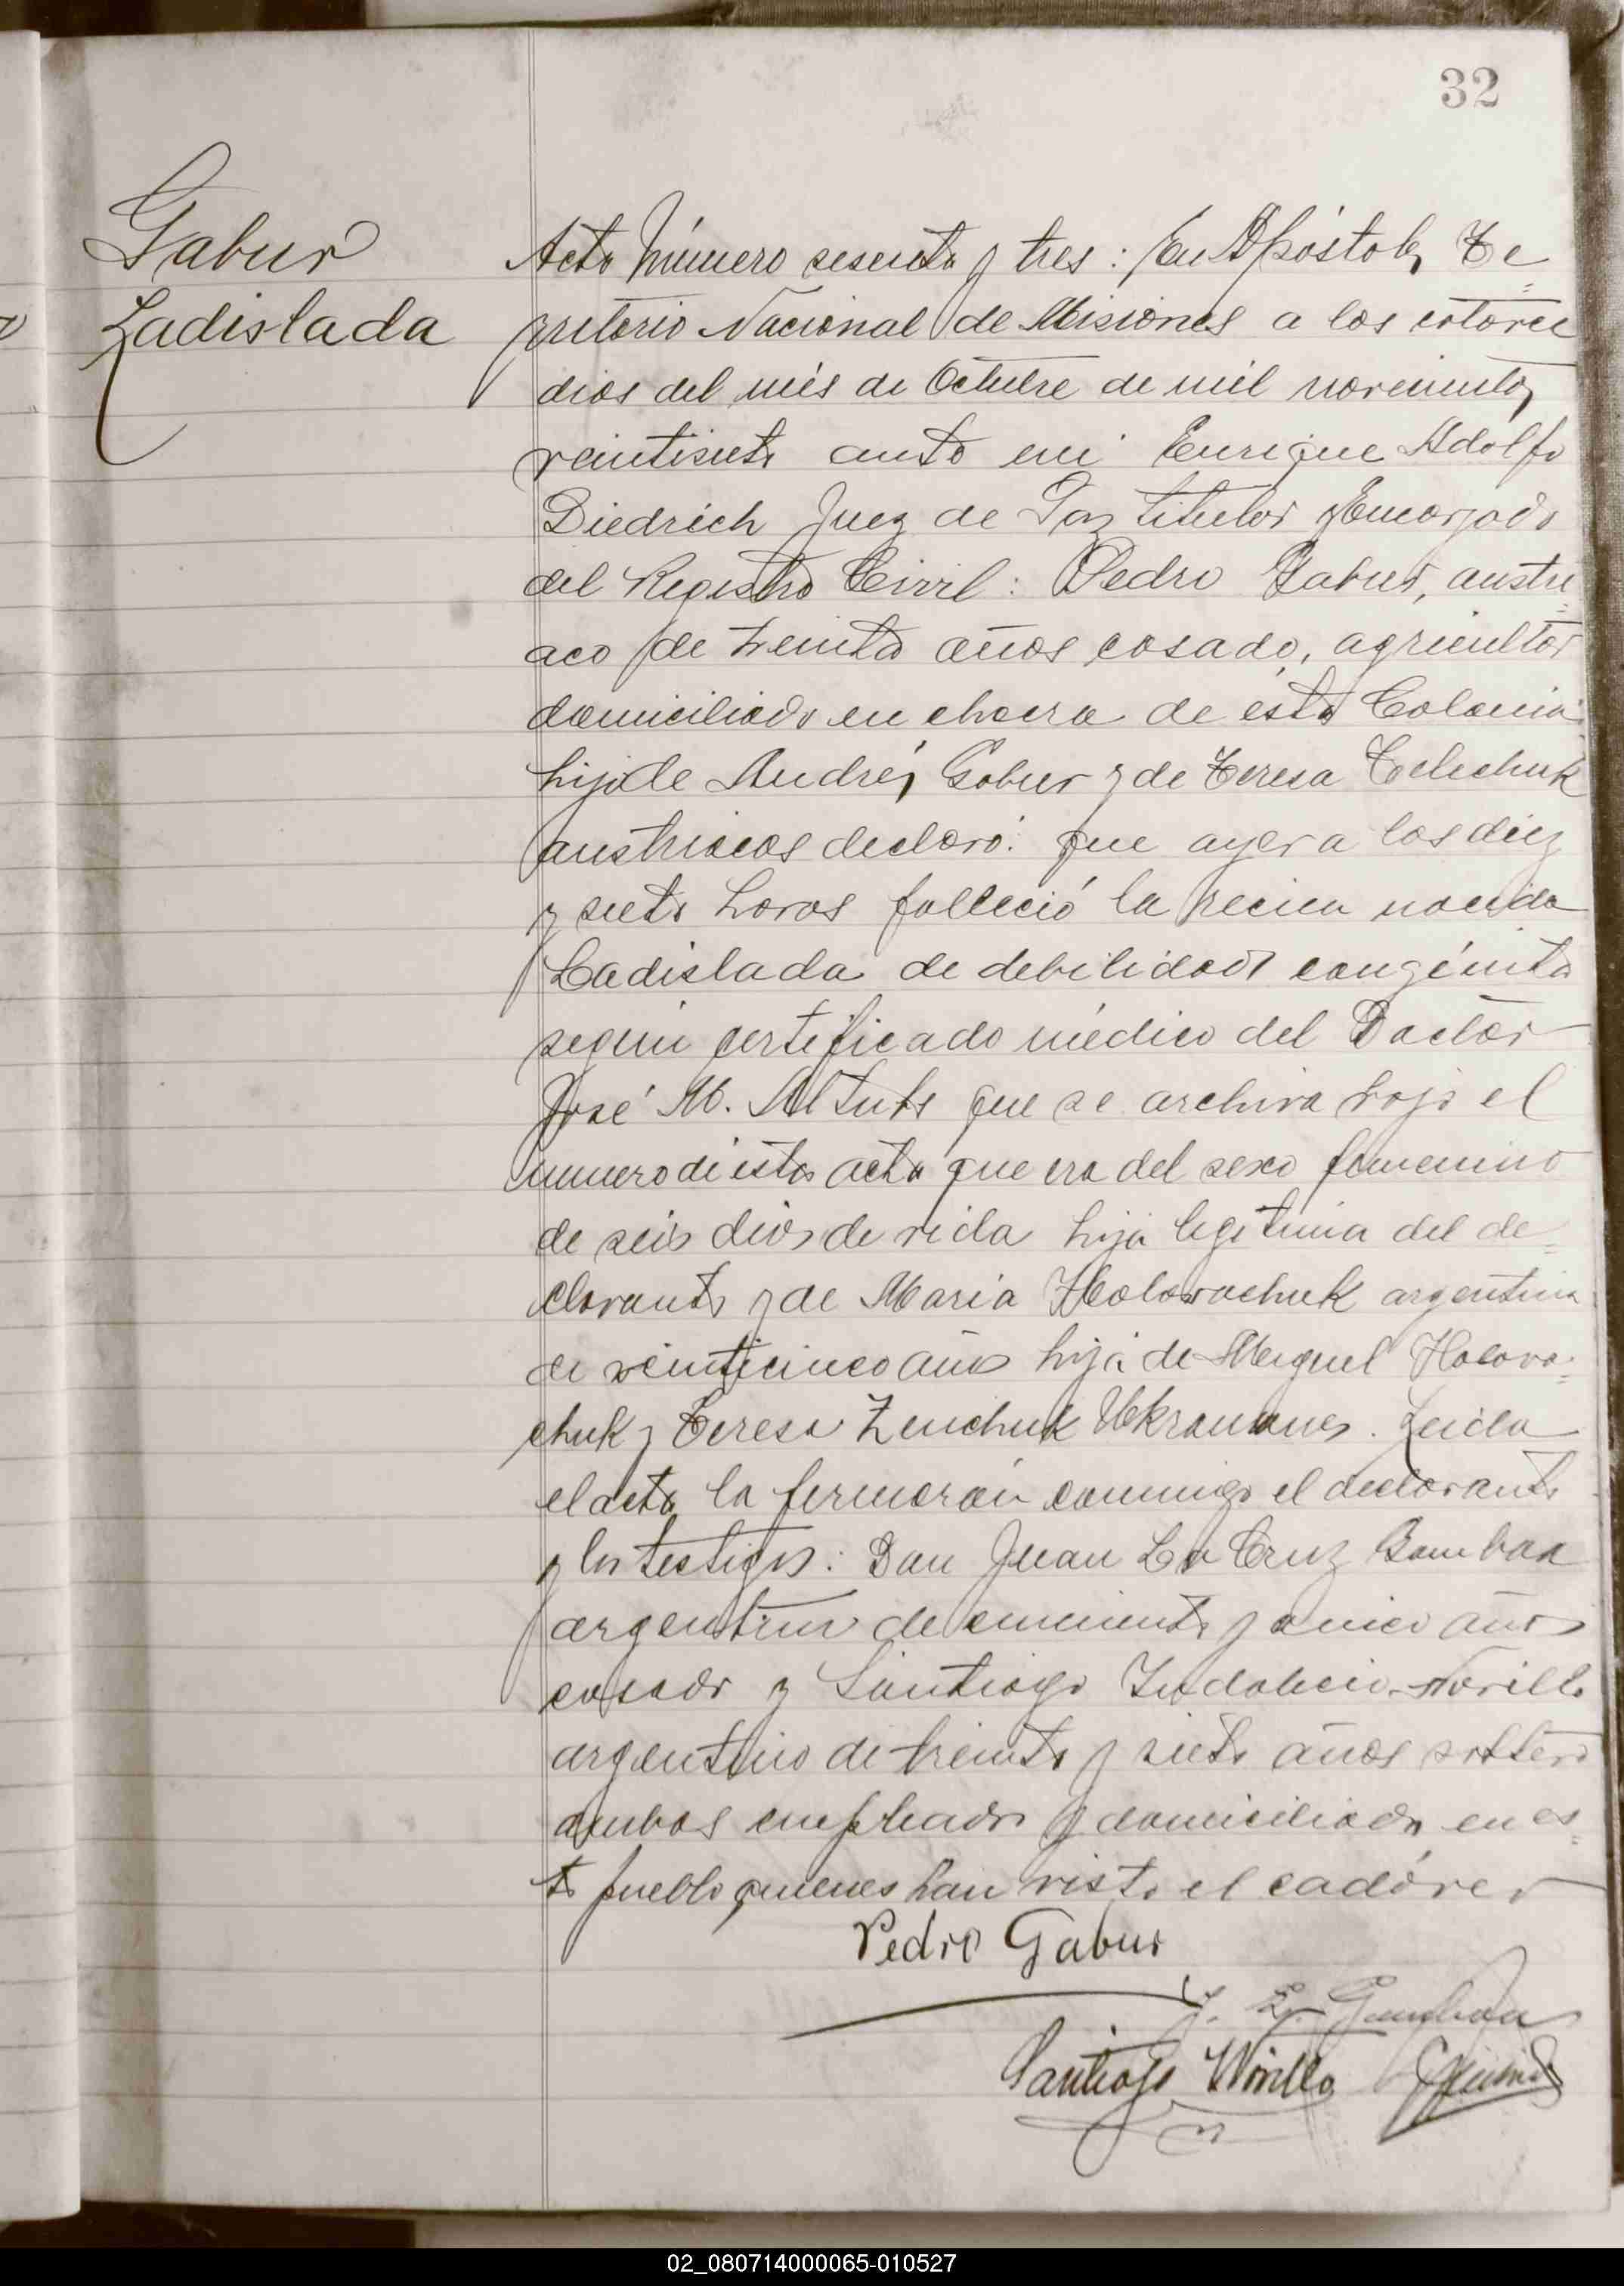 32
Gabur
Ladislada
Acta Número sesenta y tres: En Apóstoles, Te=
rritorio Nacional de Misiones a los catorce
dias del més de Octubre de mil novecientos
veintisiete ante mi Enrique Adolfo
Diedrich Juez de Paz titular y Encargado
del Registro Civil: Pedro Gabur, austri=
aco de treinta años casado, agricultor
domiciliado en chacra de ésta Colonia
hijo de Andrés Gabur y de Teresa Telechuk
austriacos declaró: que ayer a las diez
y siete horas falleció la recien nacida
Ladislada de debilidad congénita
según certificado médico del Doctor
José M. que se archiva bajo el
número de ésta acta que era del sexo femenino
de seis dias de vida hija legitima del de=
clarante y de Maria Holowachuk argentina
de veinticinco años hija de Miguel Holowa=
chuk y Teresa Zenchuk Ukranianos. Leida
el acta la firmarán conmigo el declarante
y los testigos: Don Juan La Cruz Gamboa
argentino de cincuenta y cinco años
casado y Santiago Indalecio Morillo
argentino de treinta y siete años soltero
ambos empleados y domiciliados en es=
te pueblo quienes han visto el cadáver
Pedro Gabur
J. L. Gamboa
Santiago Morillo
02_080714000065-010527